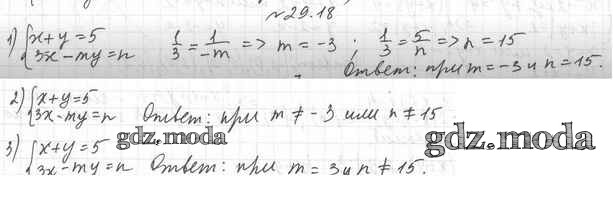 №29.18
1) {x+y=5 3x-my=n 1/3 = 1/-m => m = -3 ; 1/3 = 5/n => n = 15
Ответ: при m = -3 и n = 15.
2) {x+y=5 3x-my=n Ответ: при m ≠ -3 или n ≠ 15
gdz.moda
gdz.moda
3) {x+y=5 3x-my=n Ответ: при m = 3 и n ≠ 15.